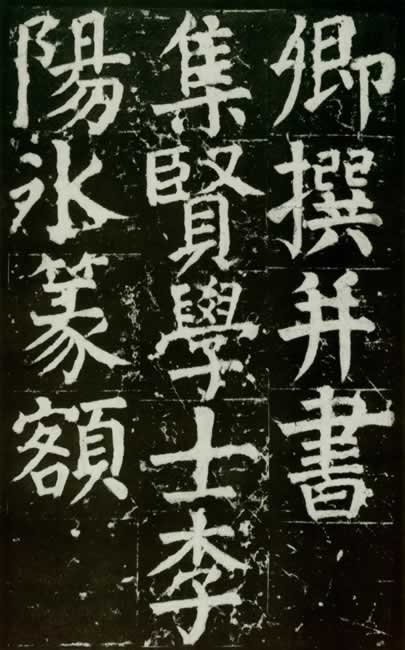 卿撰并書
集賢學士李
陽冰篆額